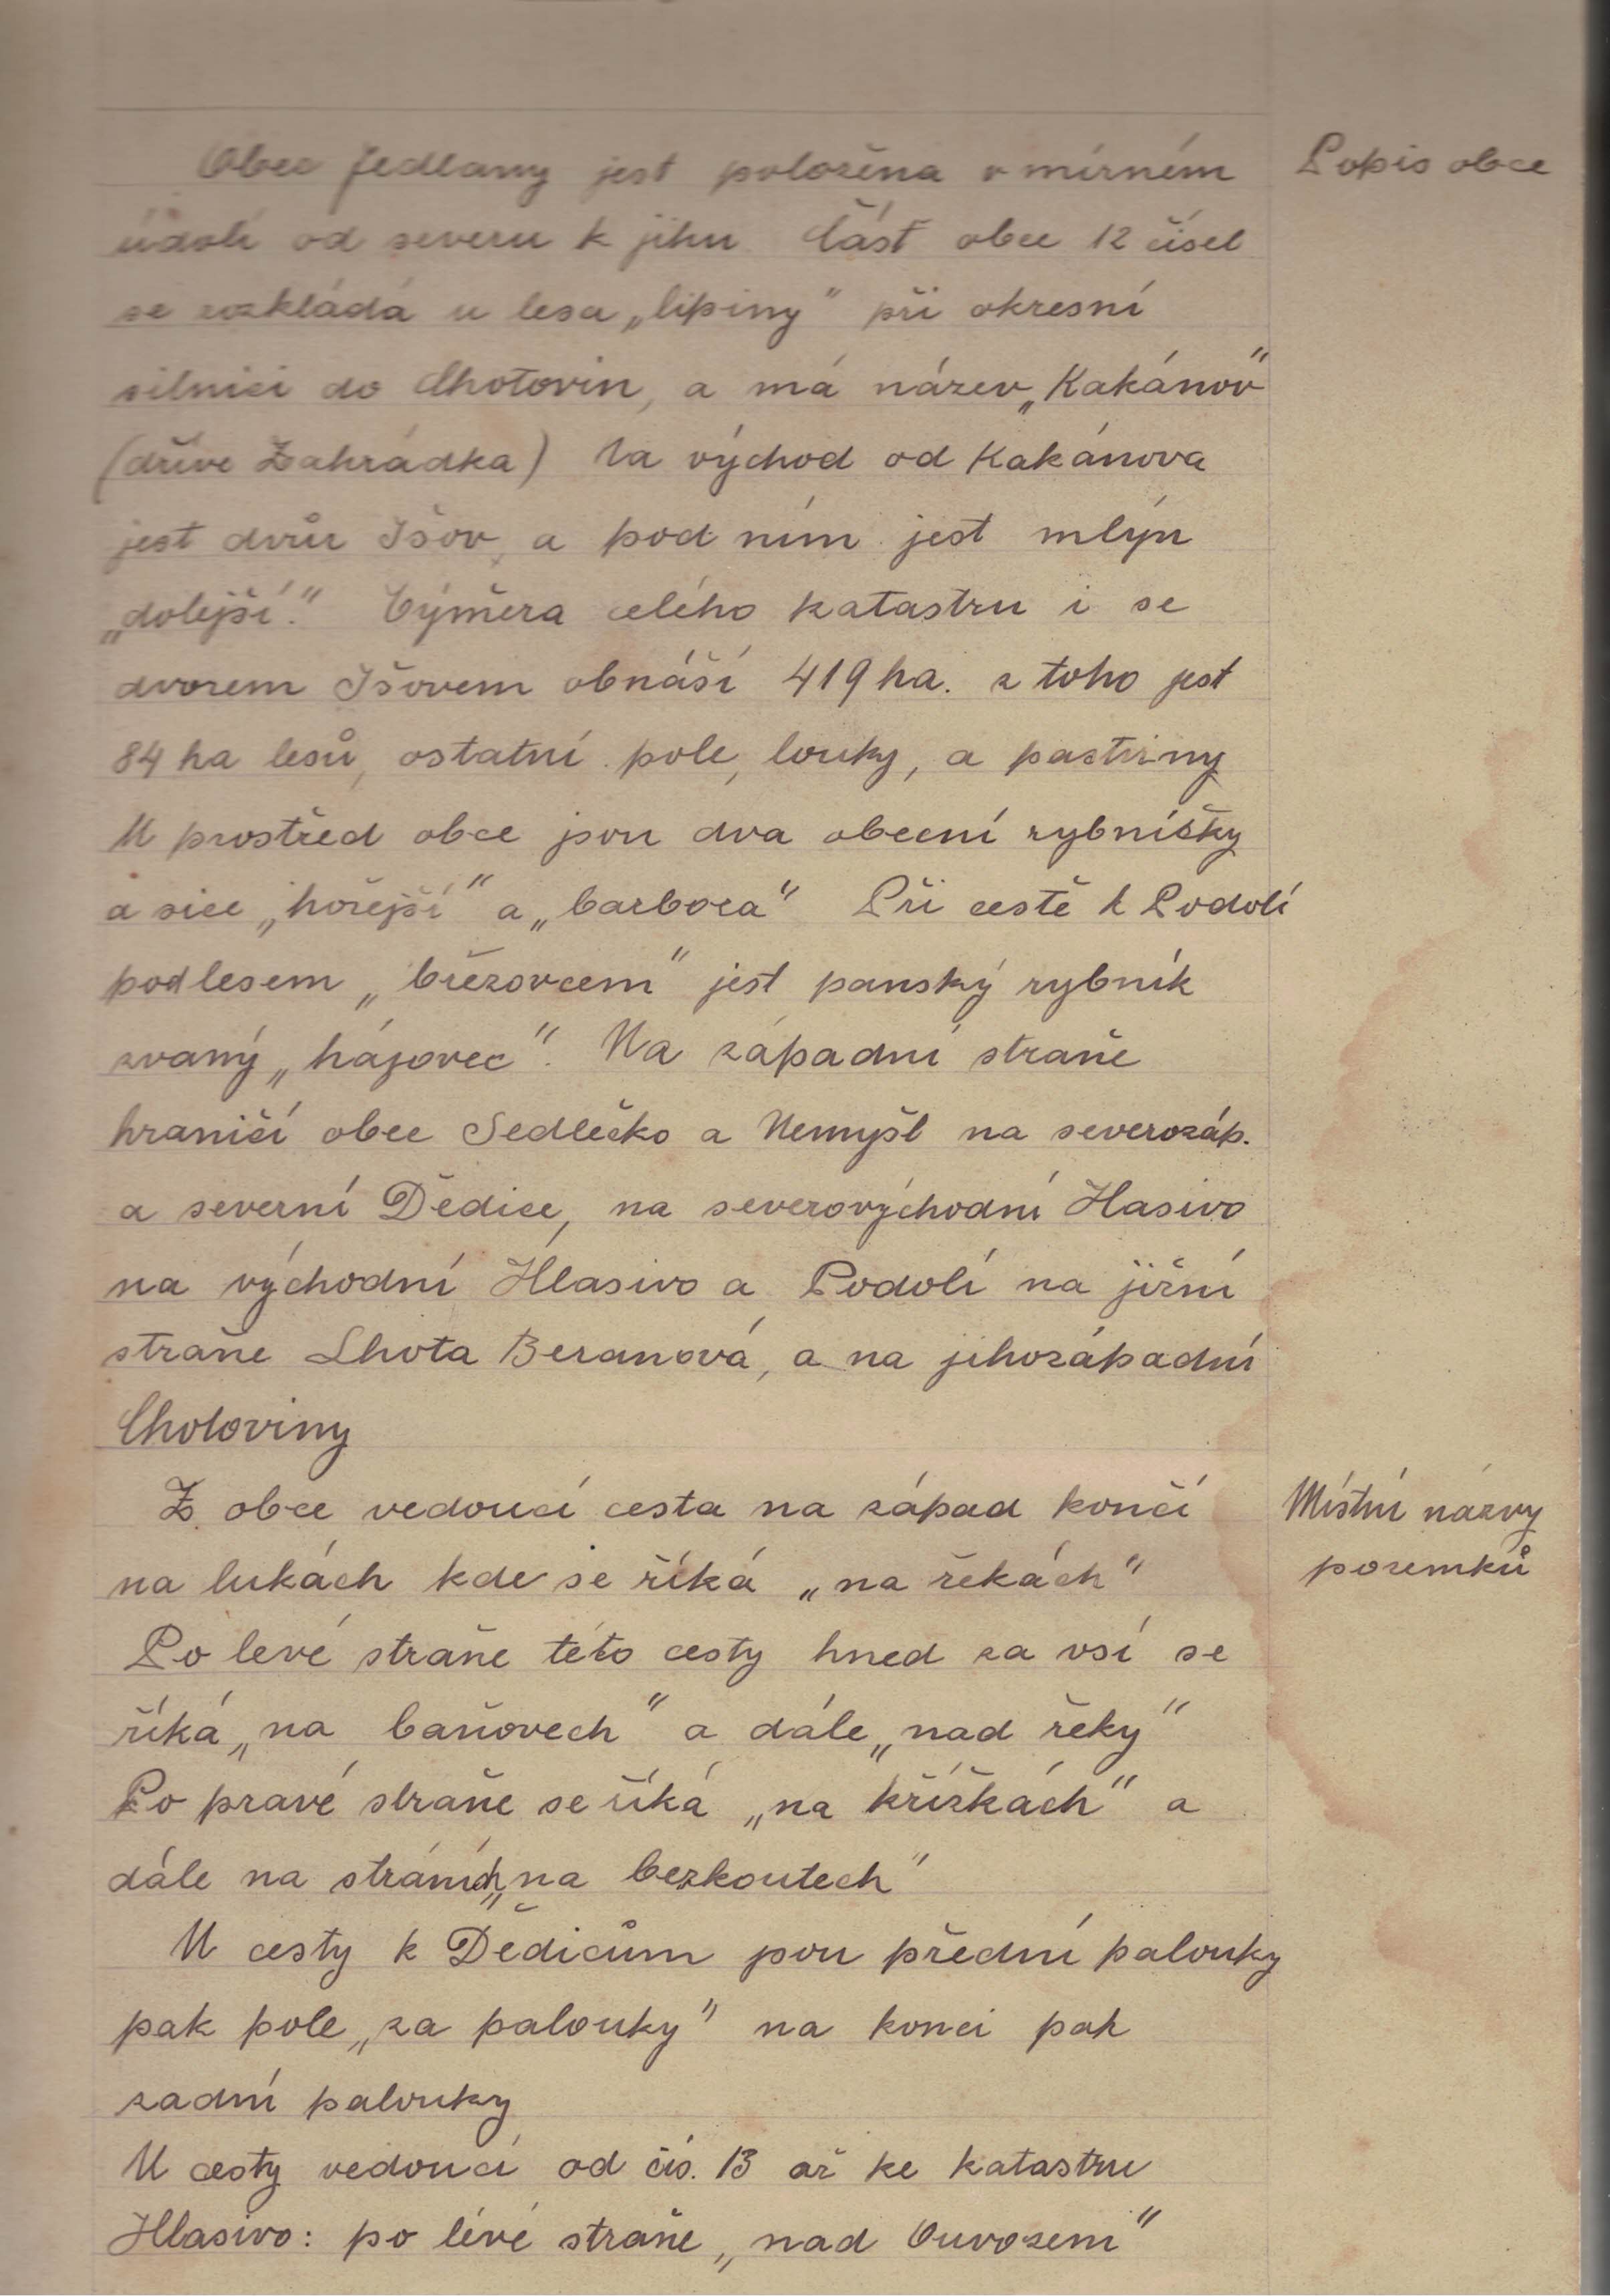 Obec Jedlany jest položena v mírném
Popis obce
údolí od severu k jihu. Část obce 12 čísel
se rozkládá u lesa „lipiny" při okresní
silnici do Chotovin, a má název „Kakánov"
(dříve Zahrádka) Na východ od Kakánova
jest dvůr Išov, a pod ním jest mlýn
„dolejší." Výměra celého katastru i se
dvorem Išovem obnáší 419 ha. z toho jest
84 ha lesů, ostatní pole, louky, a pastviny
U prostřed obce jsou dva obecní rybníčky
a sice „hořejší" a „barbora" Při cestě k Podolí
pod lesem „březovcem" jest panský rybník
zvaný „hájovec". Na západní straně
hraničí obce Sedlečko a Nemyšl na severozáp.
a severní Dědice, na severovýchodní Hlasivo
na východní Hlasivo a Podolí na jižní
straně Lhota Beranová, a na jihozápadní
Chotoviny
Z obce vedoucí cesta na západ končí
Místní názvy
na lukách kde se říká „na řekách"
pozemků
Po levé straně této cesty hned za vsí se
říká „na baňovech" a dále „nad řeky"
Po pravé straně se říká „na křížkách" a
dále na stráních „na bezkoutech"
U cesty k Dědicům jsou přední palouky
pak pole „za palouky" na konci pak
zadní palouky
U cesty vedoucí od čís. 13 až ke katastru
Hlasivo: po lévé straně „nad Ouvozem"